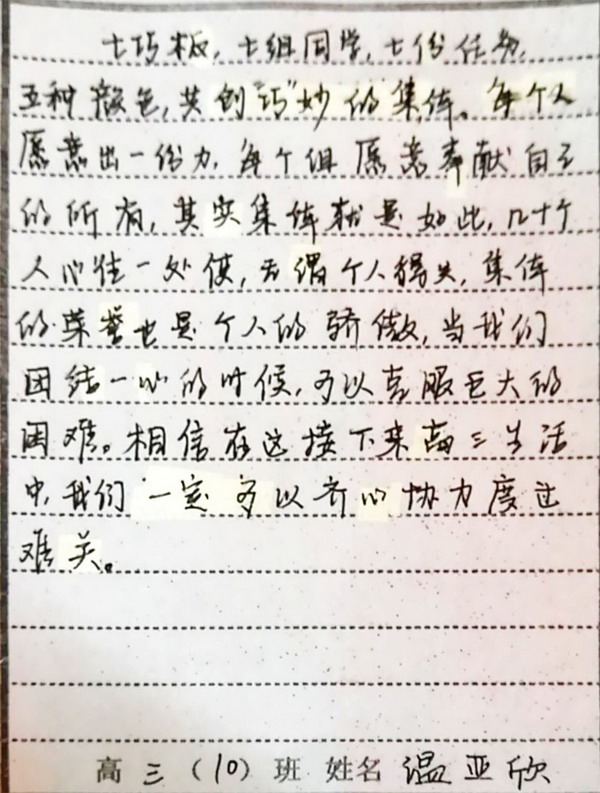 七巧板，七组同学，七份任务，
五种颜色，共创“巧”妙的集体。每个人
愿意出一份力，每个组愿意奉献自己
的所有，其实集体就是如此，几十个
人心往一处使，无谓个人得失，集体
的荣誉也是个人的骄傲，当我们
团结一心的时候，可以克服巨大的
困难。相信在这接下来高三生活
中，我们一定可以齐心协力度过
难关。
高三（10）班 姓名 温亚欣